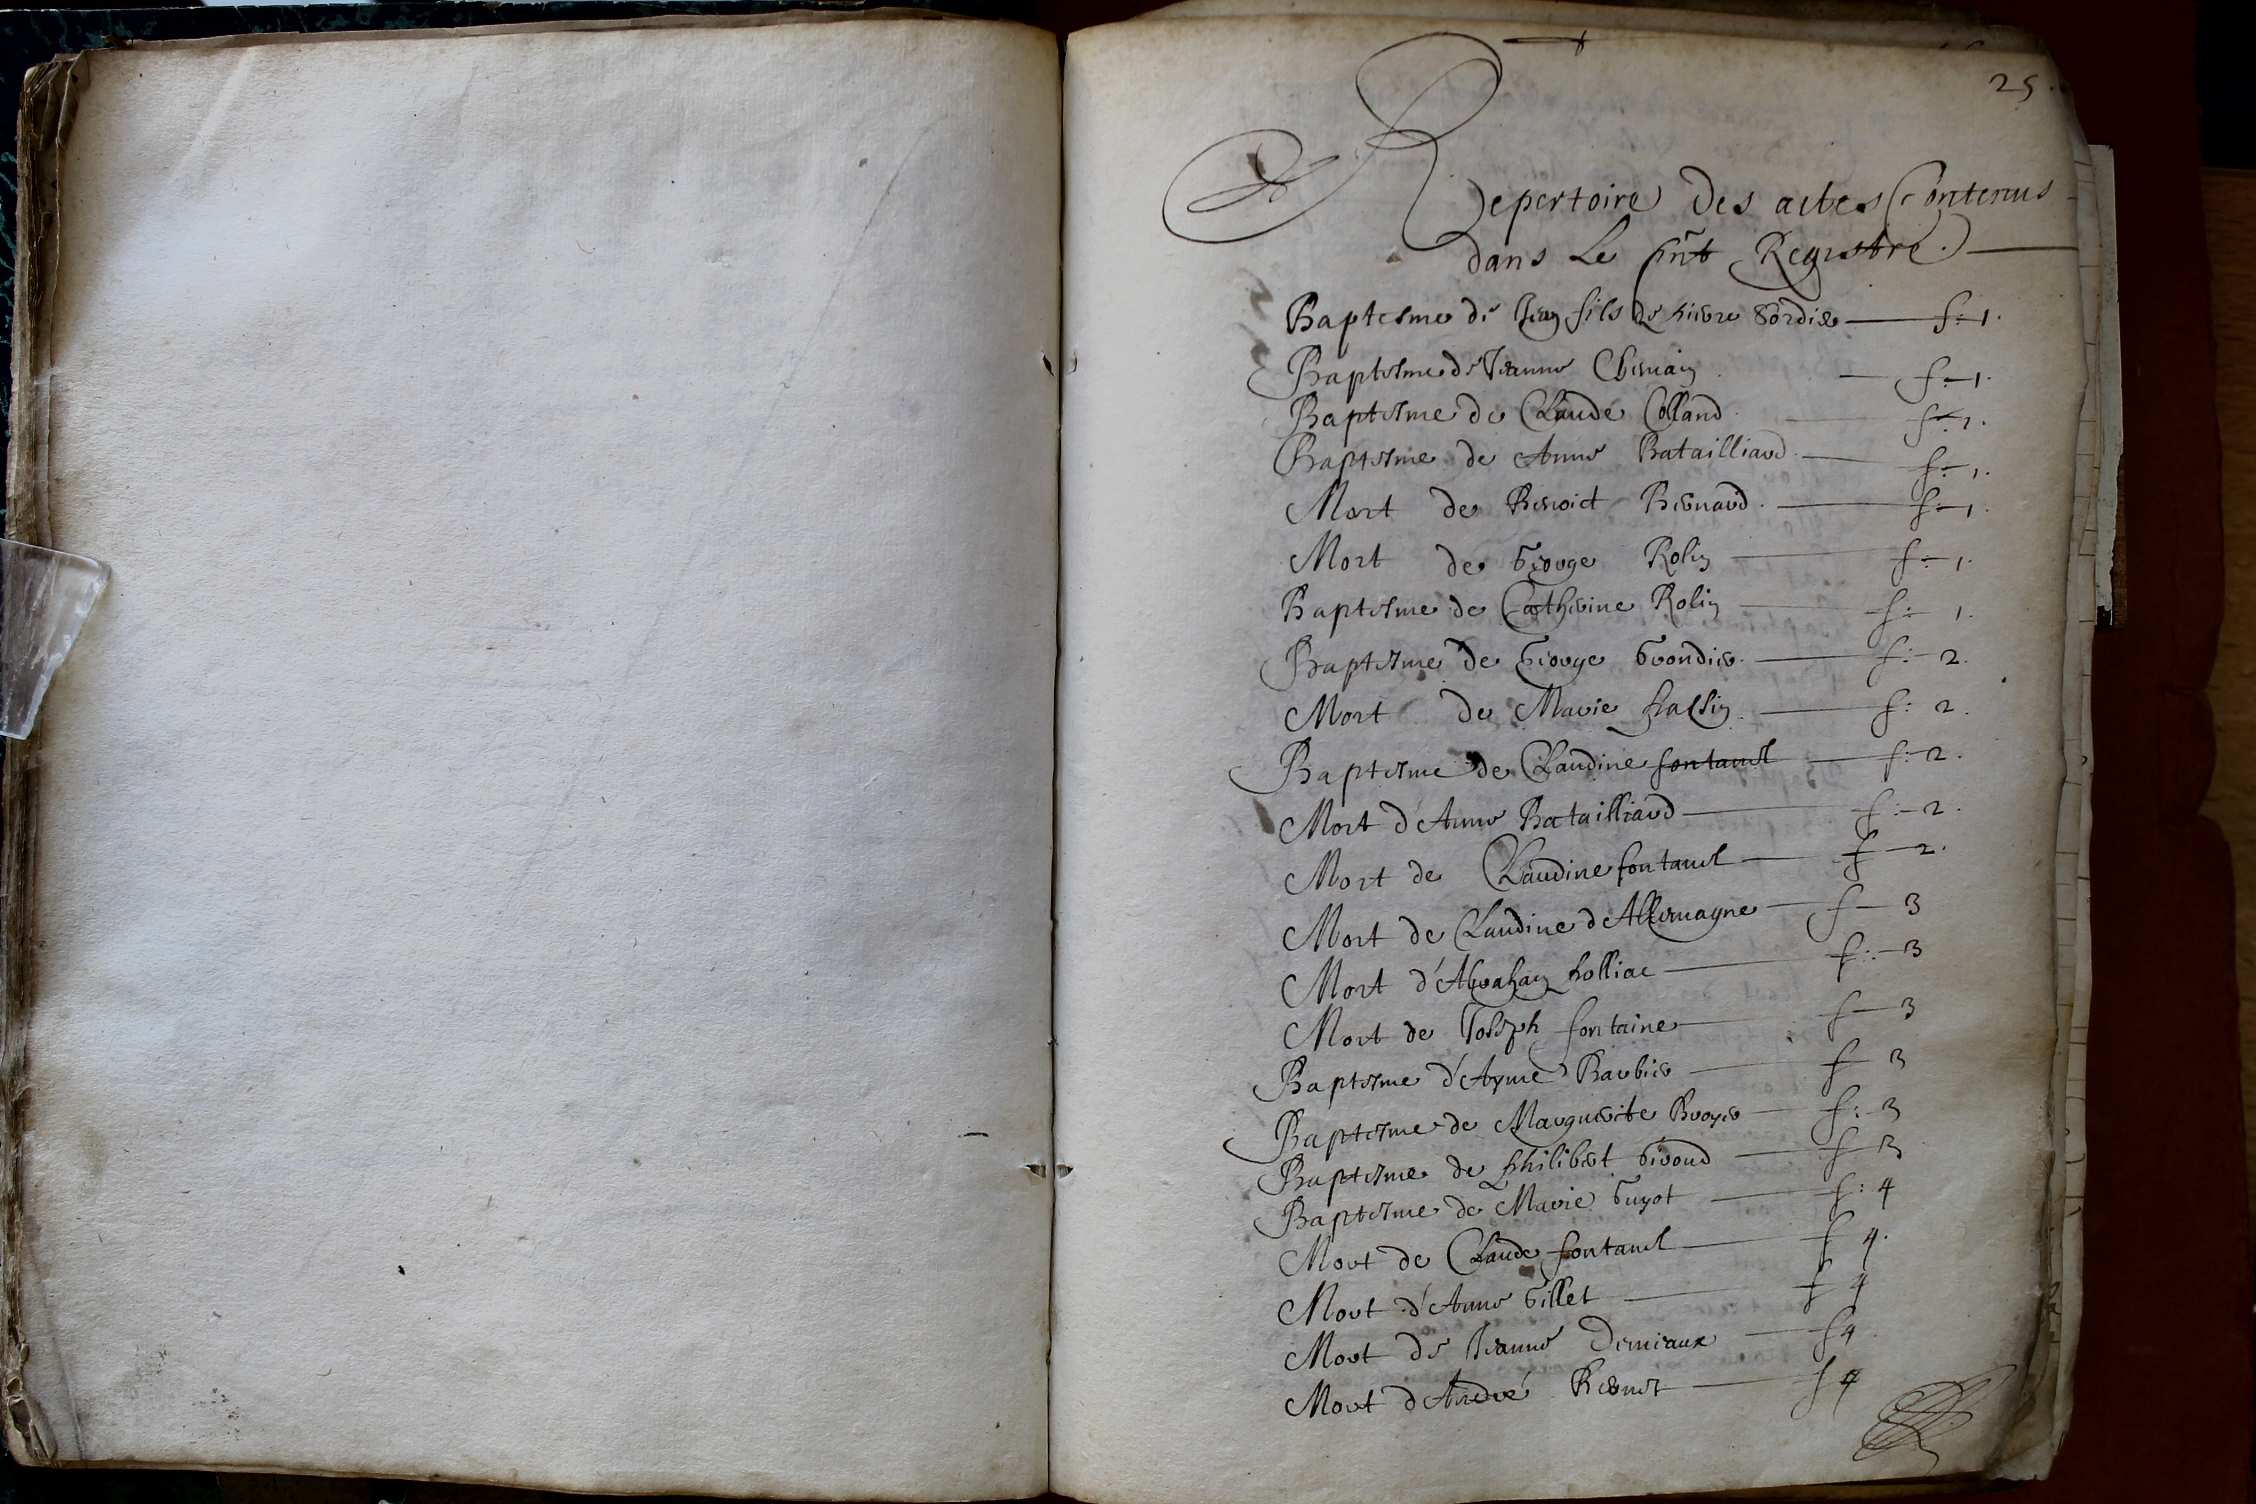 25.
Repertoire Des actes Contenus
dans Le pñt Registre.
Baptesme de Jean fils de pierre Gordier f: 1.
Baptesme de Jeanne f: 1.
Baptesme de Claude Colland f: 1.
Baptesme de Anne Batailliard f: 1.
Mort de Benoict Bernard. f: 1.
Mort de George Rolin f: 1.
Baptesme de Catherine Rolin f: 1.
Baptesme de George Grondier. f: 2.
Mort de Marie f: 2.
Baptesme de Claudine fontanel f: 2.
Mort d'Anne Batailliard f: 2.
Mort de Claudine fontanel f 2.
Mort de Claudine d'Allemagne f 3
Mort d'Abraham Polliac f: 3
Mort de Joseph fontaine f 3
Baptesme d'Ayme Barbier f 3
Baptesme de Marguerite Broyer f: 3
Baptesme de Philibert Giroud f 3
Baptesme de Marie Guyot f: 4
Mort de Claude fontanel f 4.
Mort d'Anne Gillet f 4
Mort de Jeanne Demiaux f 4
Mort d'André Bernet f 4